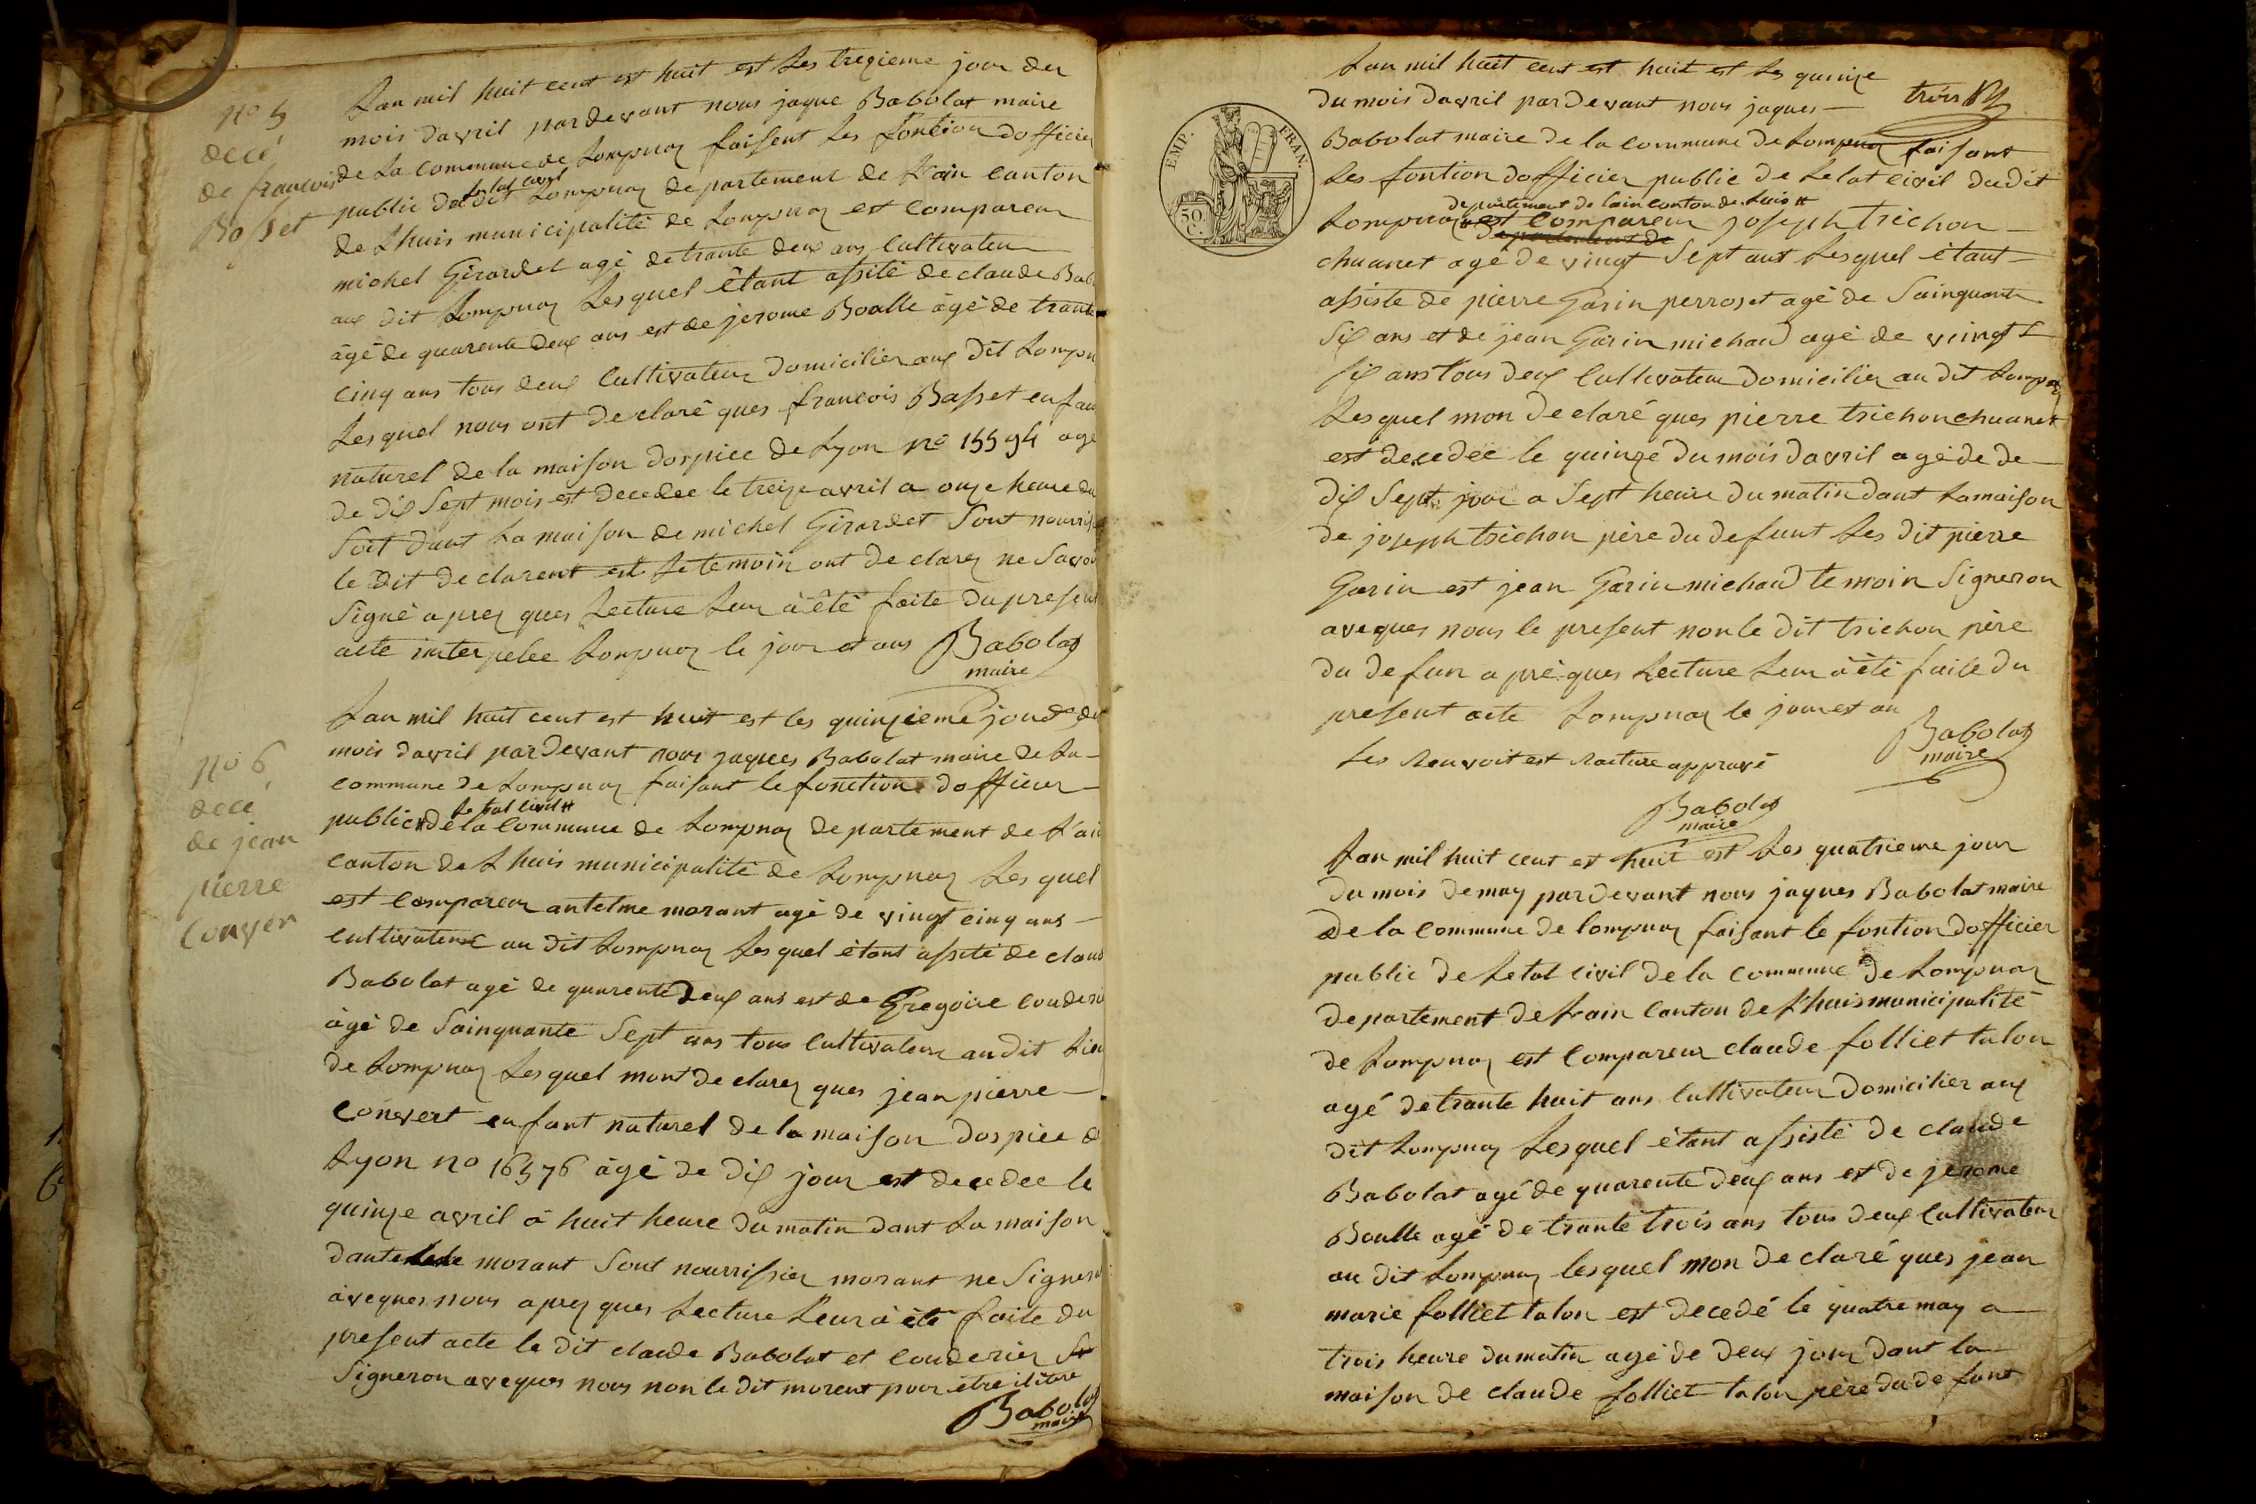 no 5
decé
de francois
Basset
Lan mil huit cent est huit est les tregieme jour du
mois davril pardevant nous jaque Babolat maire
de La commune de Lompnaz faisent les fontion dofficier
public de letat civil du dit Lompnaz departement de Lain canton
de Lhuis municipalité de Lompnaz est compareur
michel Girardet agé de trante deux ans Cultivateur
aux dit Lompnaz Lesquel êtant assité de claude Bab
âgé de quarente deux ans est de jerome Boalle âgé de trante
cinq ans tous deux Cultivateur Domicilier aux dit Lompn
Lesquel nous ont declaré ques francois Basset enfan
naturel de la maison dospice de Lyon no 15594 age
de dix Sept mois est decedee le treize avril a onze heure du
Soit dant La maison de michel Girardet Sont nourris
le dit declarent est le temoin ont declarez ne Savoi
Signé aprez ques Lecture Leur â êté faite du present
acte interpelée Lompnaz le jour et ans Babolat
maire
no 6
decé
de jean
pierre
Conver
Lan mil huit cent est huit est les quinzieme jour du
mois davril pardevant nous jaques Babolat maire de La
commune de Lompnaz faisant le fonction dofficier
public de letat civil de la Commune de Lompnaz departement de Lain
canton de Lhuis municipalité de Lompnaz Lesquel
est compareur antelme morant agé de vingt cinq ans
Cultivateur au dit Lompnaz Lesquel êtant assité de claud
Babolat agé de quarente deux ans est de Gregoire couderie
âgé de Sainquante Sept ans tous Cultivateur au dit Lieu
de Lompnaz Lesquel mont declarez ques jean pierre
convert enfant naturel de la maison dospice d
Lyon no 16576 âgé de dix jour est decedee le
quinze avril â huit heure du matin dant La maison
dantelme morant Sont nourrissier morant ne Signera
aveques nous aprez ques Lecture Leur â êté faite du
present acte le dit claude Babolat et Couderier
Signeron aveques nous non le dit morent pour être ilitere
Babolat
maire
EMP. FRAN.
50 C.
Lan mil huit cent est huit est les quinze
du mois davril pardevant nous jaques
trois
Babolat maire de la commune de Lompnaz faisant
Les fontion dofficier public de Letat civil dudit
departement de lain canton de Luis
Lompnaz est compareur joseph trichon
departement de
chuanet agé de vingt Sept ant Lesquel êtant
assiste de pierre Garin perroset agé de Sainquante
Six ans et de jean Garin michaud agé de vingt
six ans tous deux Cultivateur domicilier au dit Lompnaz
Lesquel mon declaré ques pierre trichon chuanet
est decedée le quinze du mois davril agé de de
dix Sept jour a Sept heure du matin dant La maison
de joseph trichon père du defunt Les dit pierre
Garin est jean Garin michaud temoin Signeron
aveques nous le present non le dit trichon père
du defun aprè ques Lecture Leur â êté faite du
present acte Lompnaz le jour est an
Babolat
maire
Les Renvoit est Racture appravé
Babolat
maire
Lan mil huit cent est huit est Les quatrieme jour
du mois demay pardevant nous jaques Babolat maire
de la commune de lompnaz faisant le fontion dofficier
public de Letat civil de la commune de Lompnaz
departement de Lain Canton de Lhuis municipalité
de Lompnaz est compareur claude folliet talon
agé de trante huit ans Cultivateur domicilier aux
dit Lompnaz Lesquel êtant assisté de claude
Babolat agé de quarente deux ans est de jerome
Boalle agé de trante trois ans tous deux Cultivateur
au dit Lompnaz lesquel mon declaré ques jean
marie folliet talon est decedé le quatre may a
trois heure du matin agé de deux jour dant la
maison de claude folliet talon père du defunt